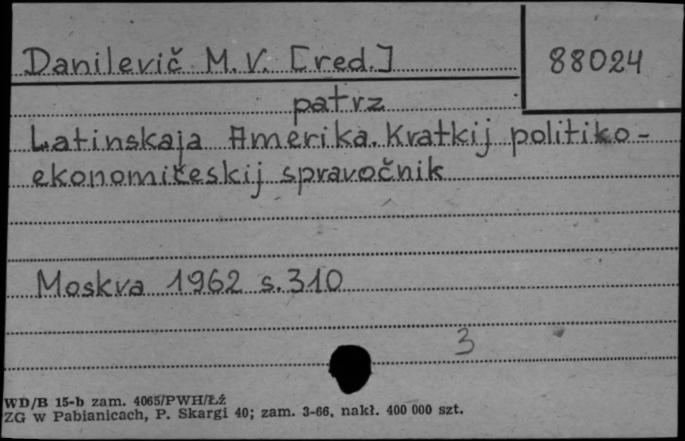 Danilevič M.V. [red.]
88024
patrz
Latinskaja Amerika. Kratkij politiko-
ekonomičeskij spravočnik
Moskva 1962 s. 310
3
WD/B 15-b zam. 4065/PWH/Łź
ZG w Pabianicach, P. Skargi 40; zam. 3-66. nakł. 400 000 szt.